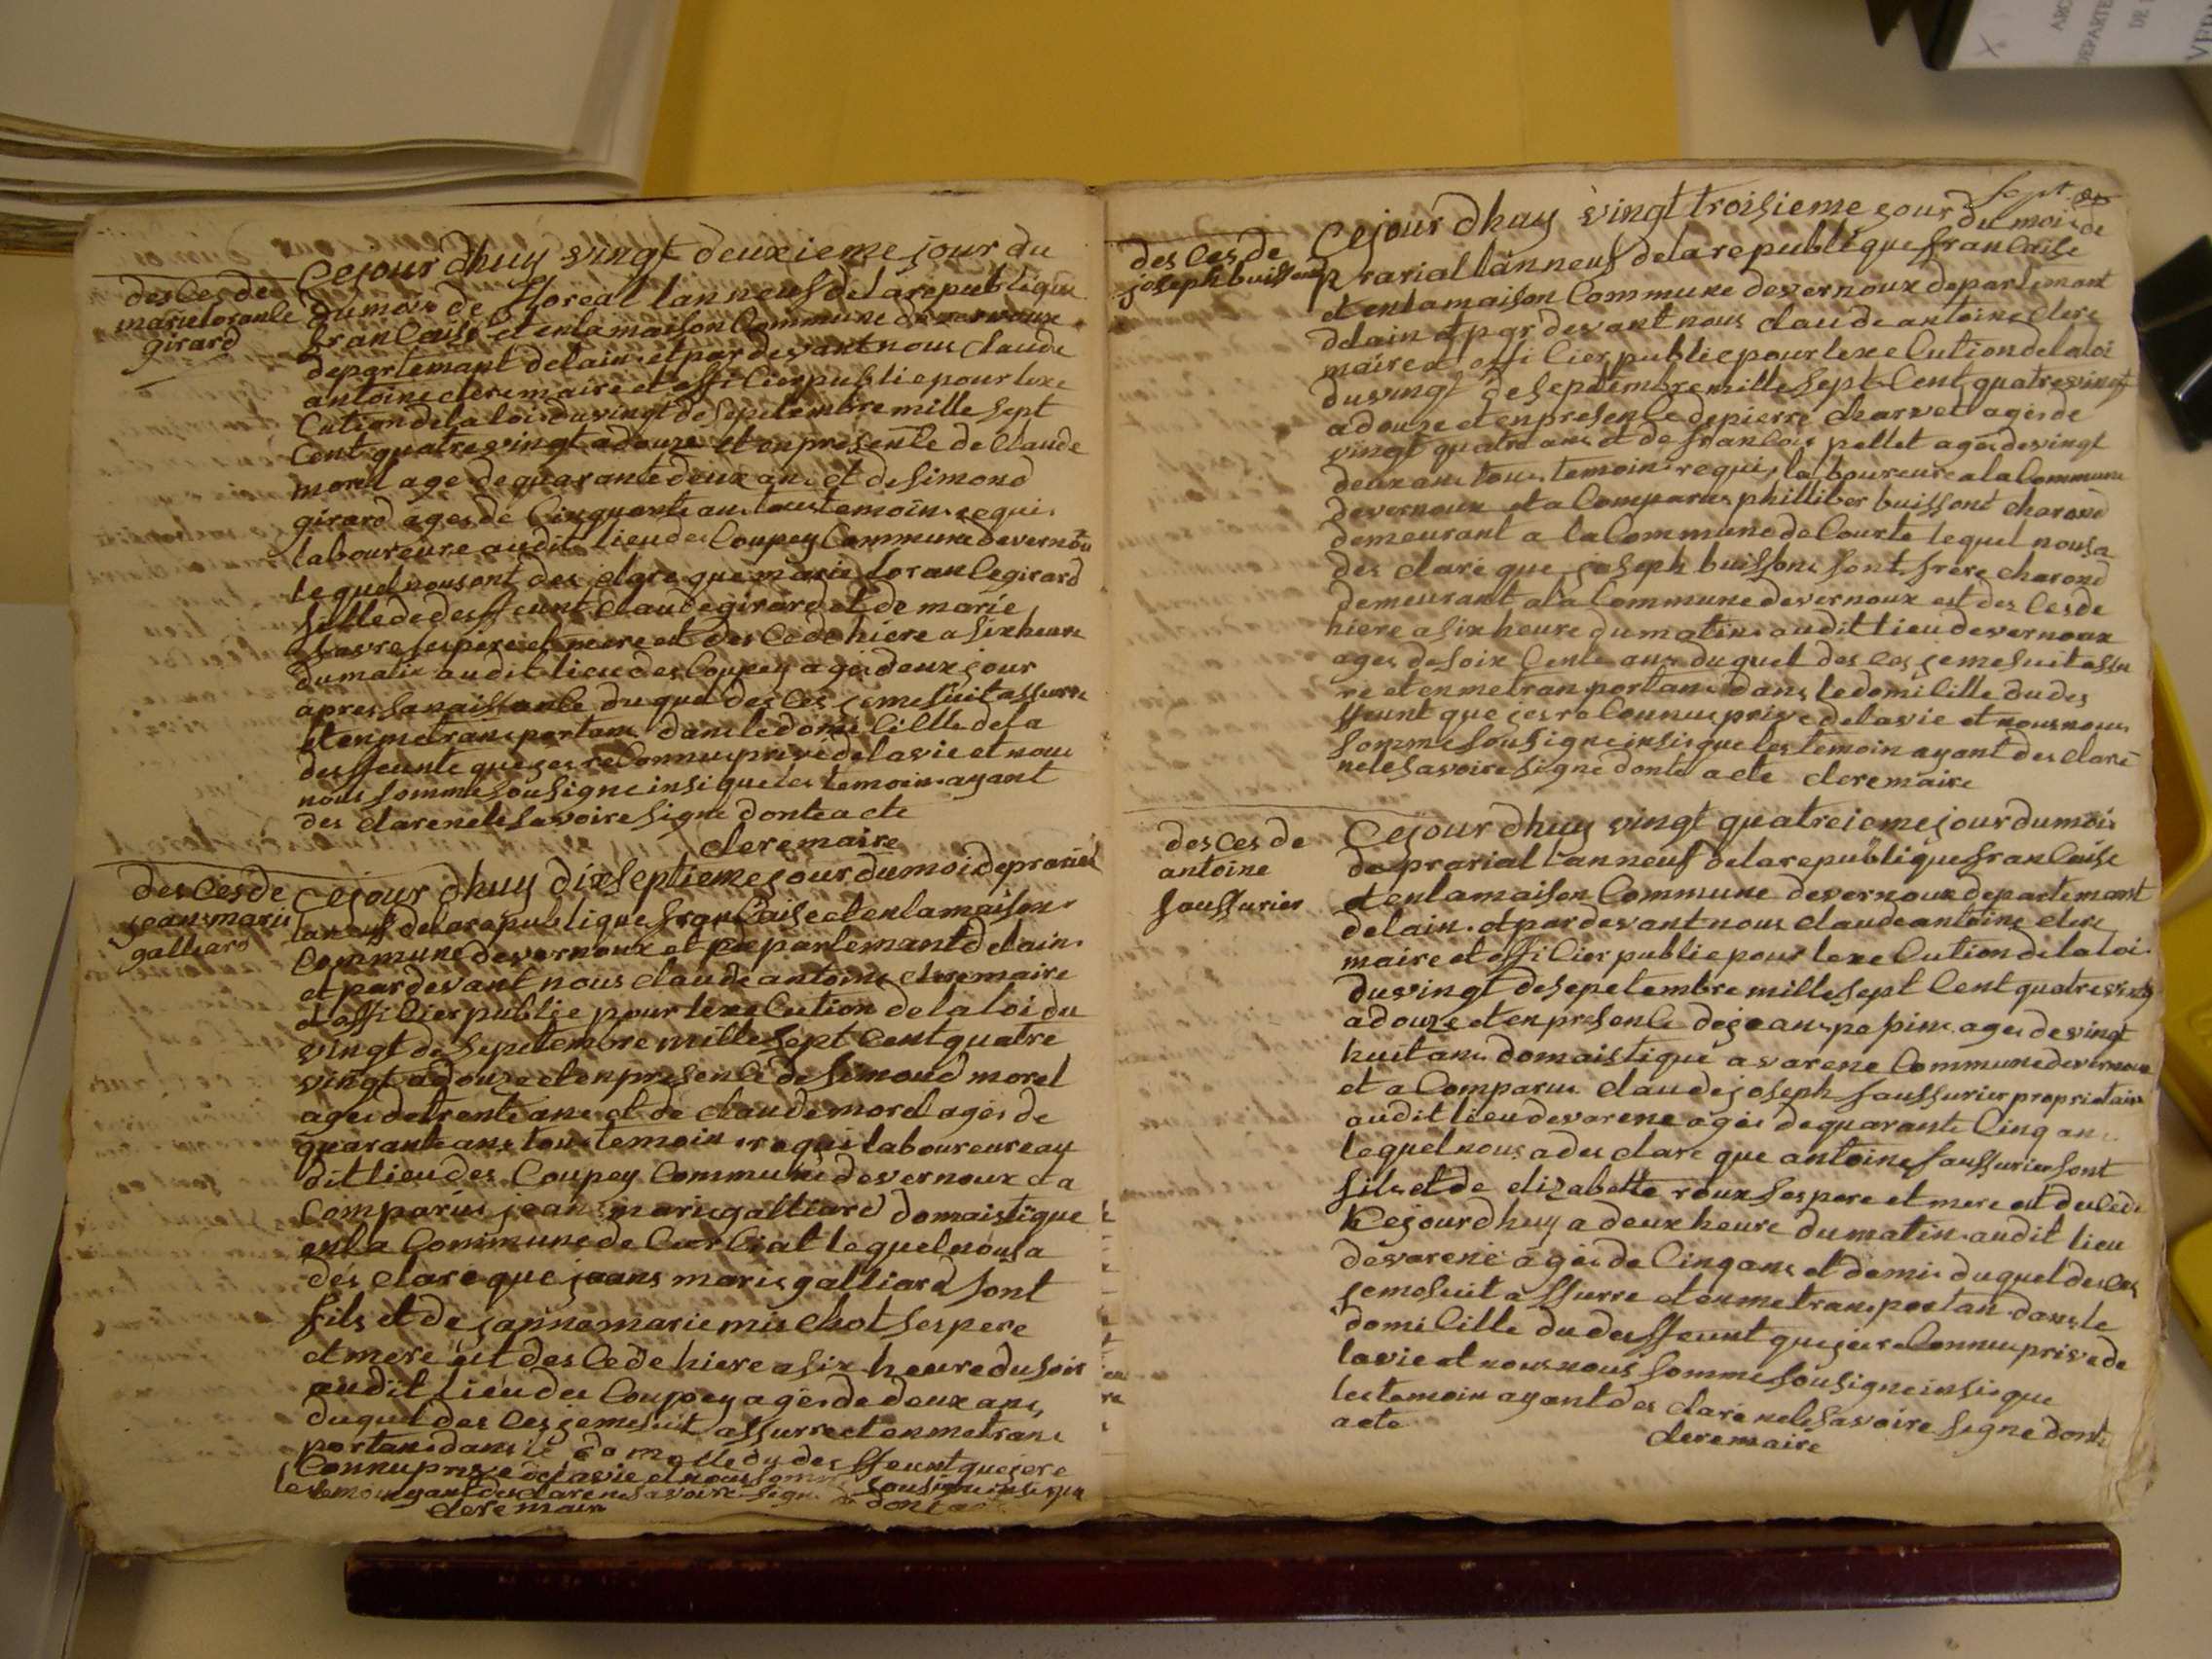 des Ces de
marie loranse
girard
Cejour dhuy vingt deuxieme jour du
du mois de floreal lan neuf de la republique
franCaise et en la maison Commune de vernoux
departemant delain et par devant nous claude
antoine clere maire et offiCier publie pour lexe
Cution de la loi du vingt de Sepetembre mille Sept
Cent quatre vingt adouze et en presence de Claude
morel age de quarante deux ans et de Simond
girard ages de Cinquante ans tous temoins requis
laboureure audit lieu des Coupey Commune de vernou
lequel nous ont des clare que marie loranse girard
fille de deffeunt Claude girard et de marie
favre ses pere et mere est des Cede hiere a Six heure
du matin audit lieu des Coupey ages deux jour
apres sa naissance du quel des Ces je me suit assurre
et en me trans portans dans le domiCille de la
desffeunte que jes reConnus prive de la vie et nous
nous somme sousigne insi que les temoins ayant
des clare nele savoire signe donte acte
clere maire
des Ces de
jeans marie
galliard
Cejour dhuy dixseptieme jour du moi de prarial
lan neuf de la republique franCaise et en la maison
Commune de vernoux et departemant delain
et par devant nous claude antoine clere maire
et offiCier publie pour lexeCution de la loi du
vingt de Sepetembre mille Sept Cent quatre
vingt adouze et en presence de Simond morel
ages de trente ans et de claude morel ages de
quarante ans tous temoin requis laboureure au
dit lieu des Coupey Commune de vernoux et a
Comparus jeans marie galliard domaistique
en la Commune de CurCiat lequel nous a
des clare que jeans marie galliard Sont
fils et de jannemarie mischot ses pere
et mere est des Cede hiere a six heure du soir
audit lieu des Coupey ages de deux ans
du quel des Ces je me suit assurre et en me trans
portans dans le domiCille du desffeunt que je re
Connu prive de la vie et nous somme sousigne insi que
les temoin ayant des clare ne savoire signe donte
clere maire
sept
des Ces de
joseph buissons
Cejour dhuy vingt troisieme jour du moi de
prarial lan neuf de la republique franCaise
et en la maison Commune de vernoux departemant
delain et par devant nous claude antoine clere
maire et offiCier publie pour lexeCution de la loi
du vingt de Septembre mille Sept Cent quatre vingt
adouze et en presence de pierre charvet ages de
vingt quatre ans et de franCois pellet ages de vingt
deux ans tous temoins requis laboureure a la Commune
de vernoux et a Comparus philliber buissont charond
demeurant a la Commune de Courte lequel nous a
des clare que joseph buissons sont frere charond
demeurant a la Commune de vernoux est des Cesde
hiere a six heure du matin audit lieu de vernoux
ages de soix Cente ans du quel des Ces je me suit assu
re et en me trans portans dans le domiCille du des
ffeunt que jes reConnus prive de la vie et nous nous
somme sousigne insi que les temoin ayant des clare
nele savoire signe donte acte clere maire
des Ces de
antoine
faussurier
Cejour dhuy vingt quatreieme jour du mois
de prarial lan neuf de la republique franCaise
et en la maison Commune de vernoux departemant
delain et par devant nous claude antoine clere
maire et offiCier publie pour lexeCution de la loi
du vingt de Sepetembre mille sept Cent quatre vingt
adouze et en presence de jeans pepins ages de vingt
huit ans domaistique a varene Commune de vernoux
et a Comparus claude joseph faussurier proprietaire
audit lieu de varene ages de quarante Cinq ans
lequel nous a des clare que antoine faussurier sont
fils et de elizabette roux ses pere et mere est des Cede
Cejourdhuy a deux heure du matin audit lieu
de varene ages de Cinq ans et demis du quel des Ces
je me suit assurre et en me trans portan dans le
domiCille du desffeunt que jes reConnus prive de
la vie et nous nous somme sousigne insi que
les temoin ayant des clare nele savoire signe dont
acte
clere maire